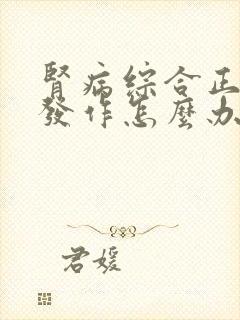 腎病綜合正
發作怎麼办
君媛